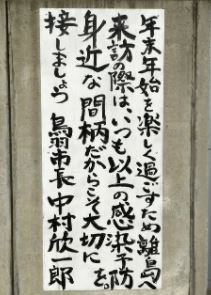 年末年始を楽しく過ごすため離島へ
来訪の際は、いつも以上の感染予防を。
身近な間柄だからこそ大切に
接しましょう 鳥羽市長 中村欣一郎